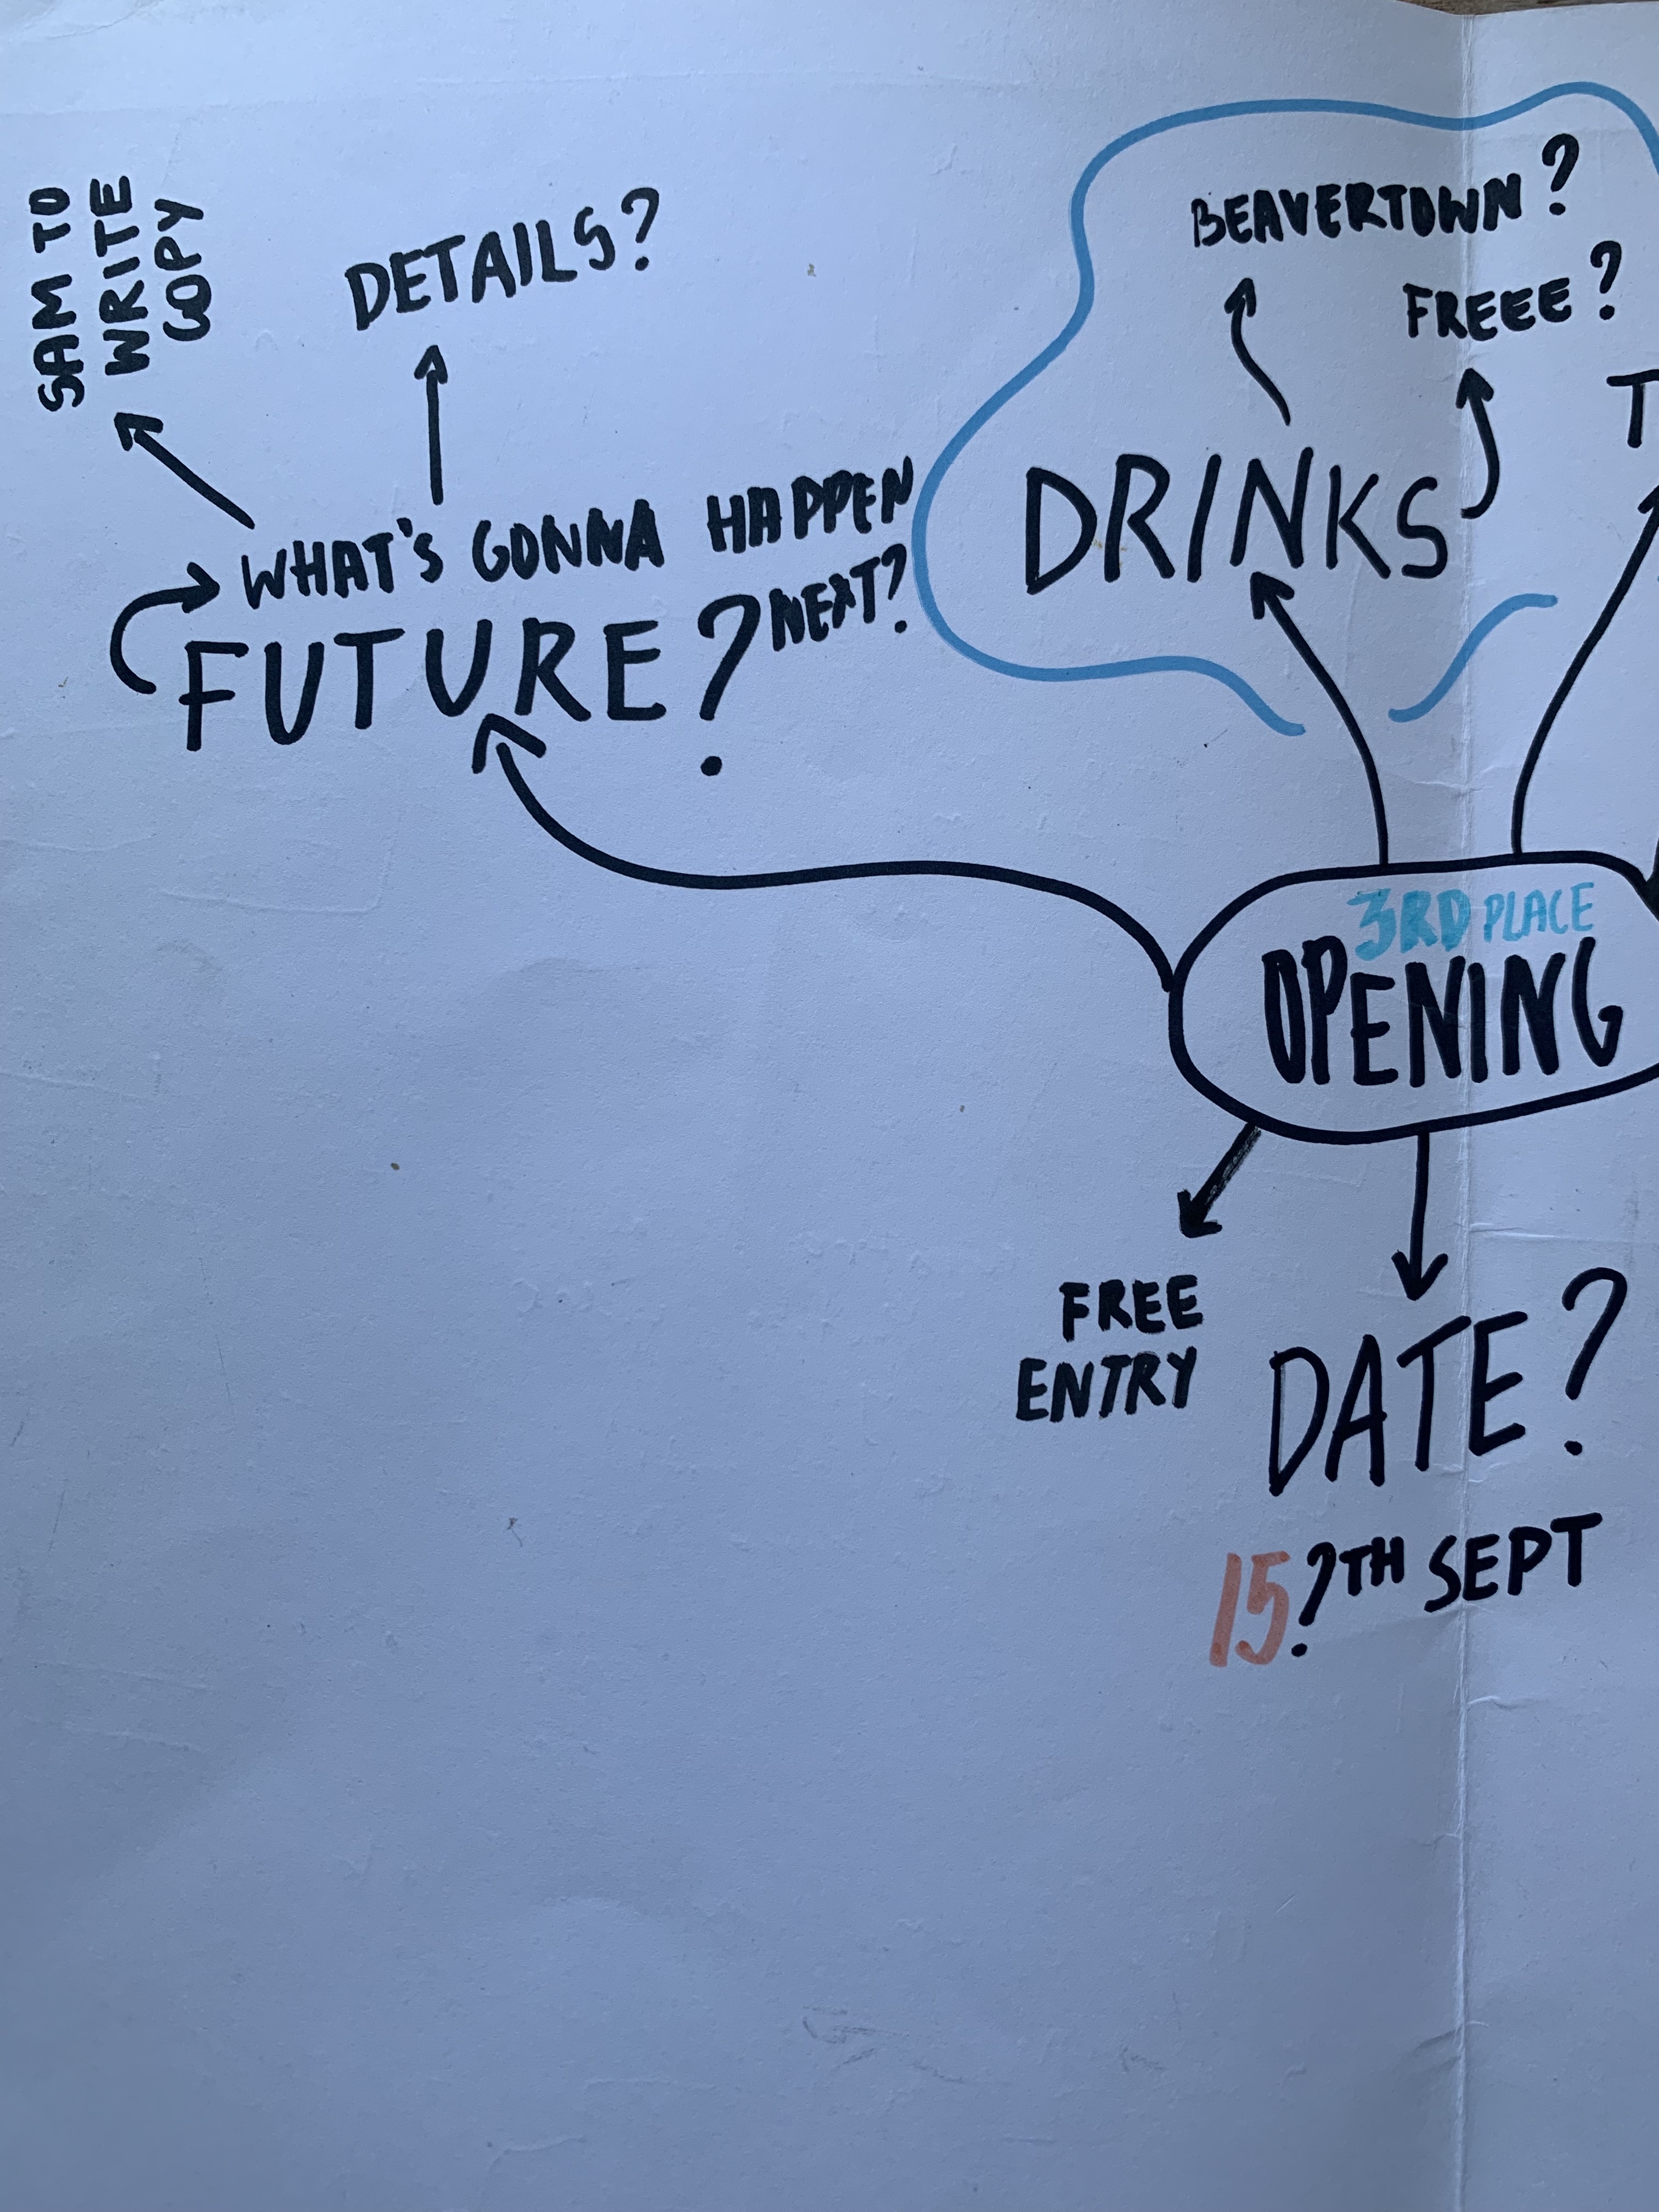 SAM TO
WRITE
COPY
DETAILS?
WHAT'S GONNA HAPPEN
NEXT?
FUTURE?
BEAVERTOWN?
FREEE?
DRINKS
T
3RD PLACE
OPENING
FREE
ENTRY
DATE?
15?TH SEPT